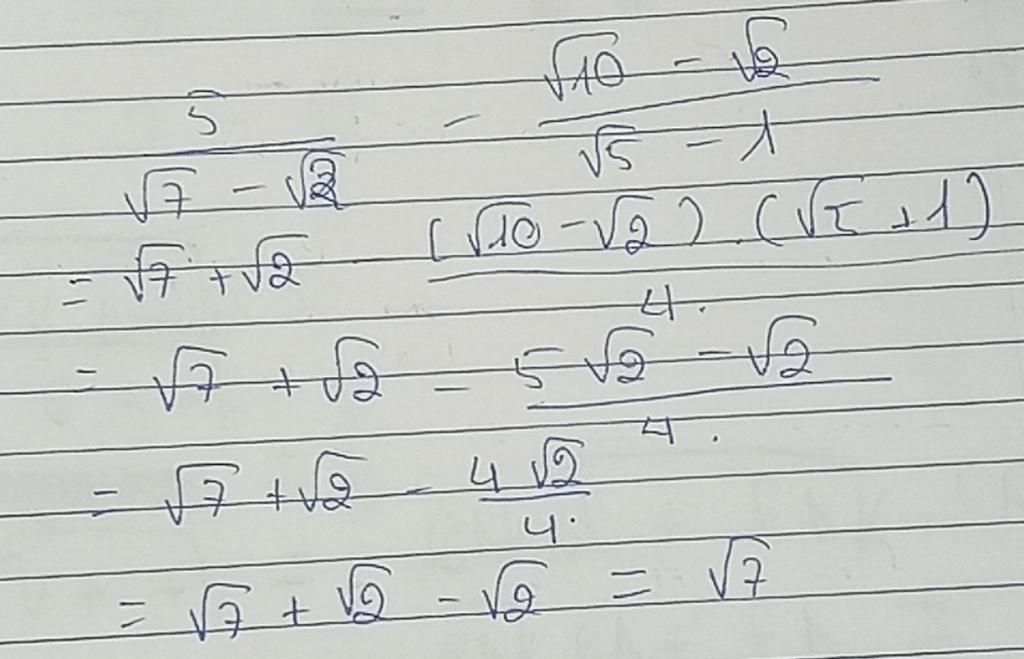 5/(√7 - √2) - (√10 - √2)/(√5 - 1)
= √7 + √2 - (√10 - √2) (√5 + 1)/4.
= √7 + √2 - (5√2 - √2)/4.
= √7 + √2 - 4√2/4.
= √7 + √2 - √2 = √7